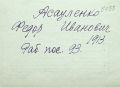 Асауленко
Федор Иванович
1913
Раб. пос. 93.